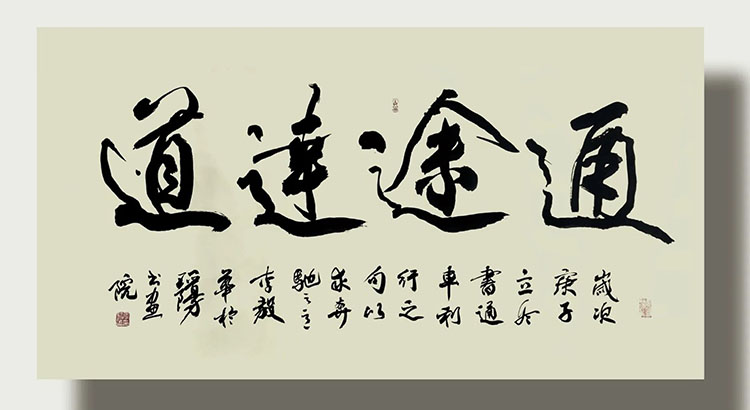 通途達道
歲次
庚子
立冬
書通
車利
行之
句以
求奔
馳之意
李毅
華於
書畫
院